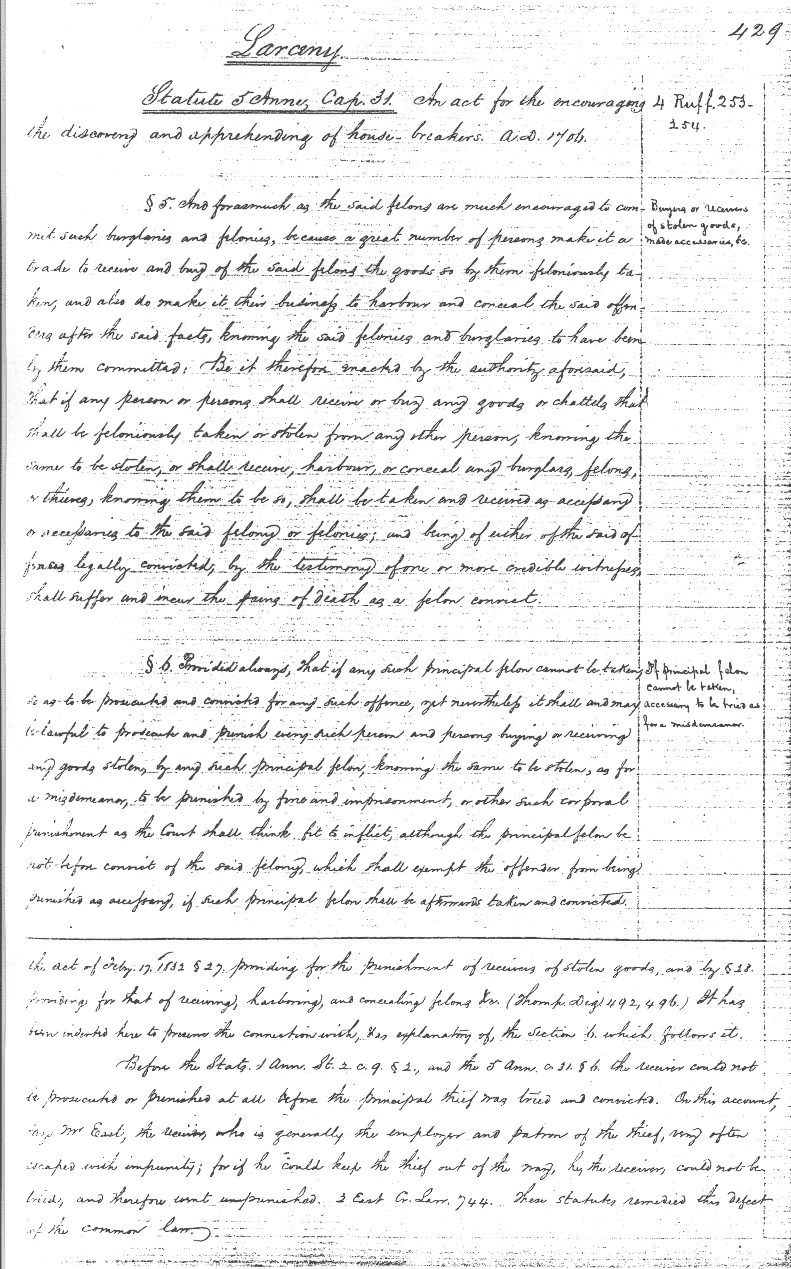 429
Larceny
Statute 5 Anne, Cap. 31. An act for the encouraging
the discovery and apprehending of house-breakers. A.D. 1706.
4 Ruff. 253-
254.
§ 5. And forasmuch as the said felons are much encouraged to com-
mit such burglaries and felonies, because a great number of persons make it a
trade to receive and buy of the said felons the goods so by them feloniously ta-
ken, and also do make it their business to harbour and conceal the said offen-
ders after the said facts, knowing the said felonies and burglaries to have been
by them committed: Be it therefore enacted by the authority aforesaid,
that if any person or persons shall receive or buy any goods or chattels that
shall be feloniously taken or stolen from any other person, knowing the
same to be stolen, or shall receive, harbour, or conceal any burglars, felons,
or thieves, knowing them to be so, shall be taken and received as accessary
or accessaries to the said felony or felonies; and being of either of the said of-
fences legally convicted, by the testimony of one or more credible witnesses,
shall suffer and incur the pains of death as a felon convict.
Buyers or receivers
of stolen goods,
made accessaries, &c.
§ 6. Provided always, that if any such principal felon cannot be taken,
so as to be prosecuted and convicted for any such offence, yet nevertheless it shall and may
be lawful to prosecute and punish every such person and persons buying or receiving
any goods stolen, by any such principal felon, knowing the same to be stolen, as for
a misdemeanor, to be punished by fine and imprisonment, or other such corporal
punishment as the Court shall think fit to inflict, although the principal felon be
not before convict of the said felony, which shall exempt the offender from being
punished as accessary, if such principal felon shall be afterwards taken and convicted.
If principal felon
cannot be taken,
accessary to be tried as
for a misdemeanor.
the act of Feby. 17. 1832 § 27. providing for the punishment of receivers of stolen goods, and by § 28.
providing for that of receiving, harboring, and concealing felons &c. (Thomp. Dig. 492, 496.) It has
been inserted here to preserve the connection with, & as explanatory of, the Section 6. which follows it.
Before the Stats. 1 Ann. St. 2. c. 9. § 2., and the 5 Ann. c. 31. § 6. the receiver could not
be prosecuted or punished at all before the principal thief was tried and convicted. On this account,
says Mr East, the receiver, who is generally the employer and patron of the thief, very often
escaped with impunity; for if he could keep the thief out of the way, he, the receiver, could not be
tried, and therefore went unpunished. 2 East Cr. Law. 744. These statutes remedied this defect
of the common law.